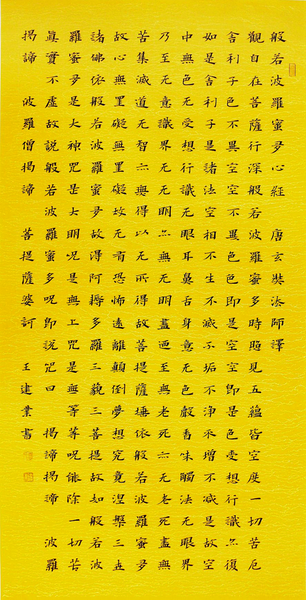 般若波羅蜜多心經 唐玄奘法師譯
觀自在菩薩行深般若波羅蜜多時照見五蘊皆空度一切苦厄
舍利子色不異空空不異色色即是空空即是色受想行識亦復
如是舍利子是諸法空相不生不滅不垢不淨不增不減是故空
中無色无受想行識无眼耳鼻舌身意无色聲香味觸法无眼界
乃至无意識界无无明亦无无明盡乃至无老死亦无老死盡無
苦集滅道无智亦無得以无所得故菩提薩埵依般若波羅蜜多
故心無罣礙無罣礙故无有恐怖遠離顛倒夢想究竟涅槃三世
諸佛依般若波羅蜜多故得阿耨多羅三藐三菩提故知般若波
羅蜜多是大神咒是大明咒是無上咒是無等等咒能除一切苦
眞實不虛故說般若波羅蜜多咒即說咒曰 揭諦揭諦 波羅
揭諦 波羅僧揭諦 菩提薩婆訶 王建業書